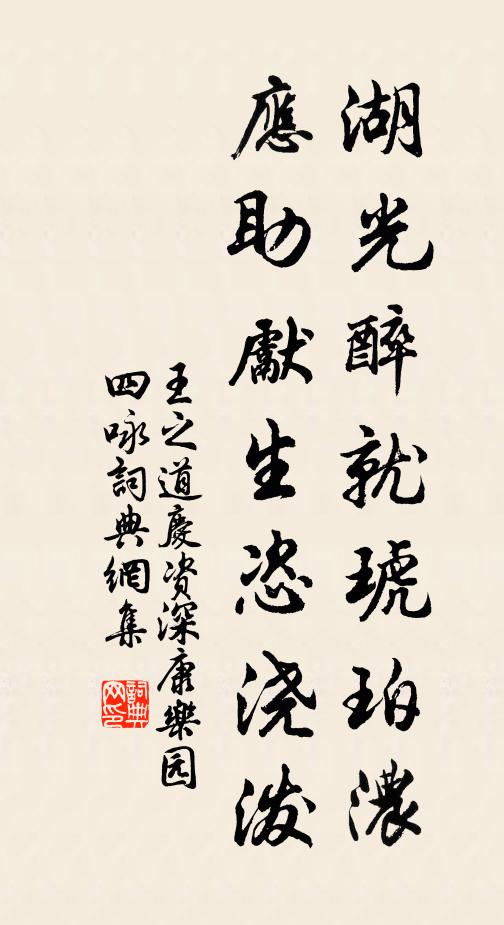 湖光醉就琥珀濃
應助獻生恣浇泼
王之道慶资深康樂园
四咏詞典網集
詞典网印